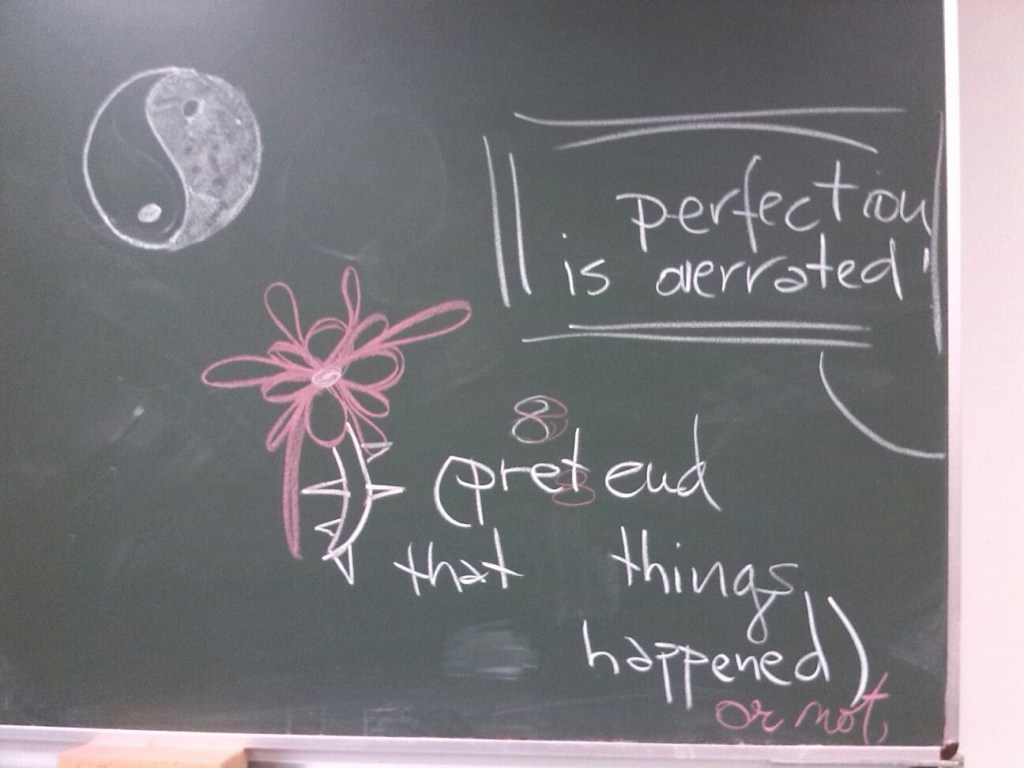 perfection
is overrated
8
(pretend
that things
happened)
or not,